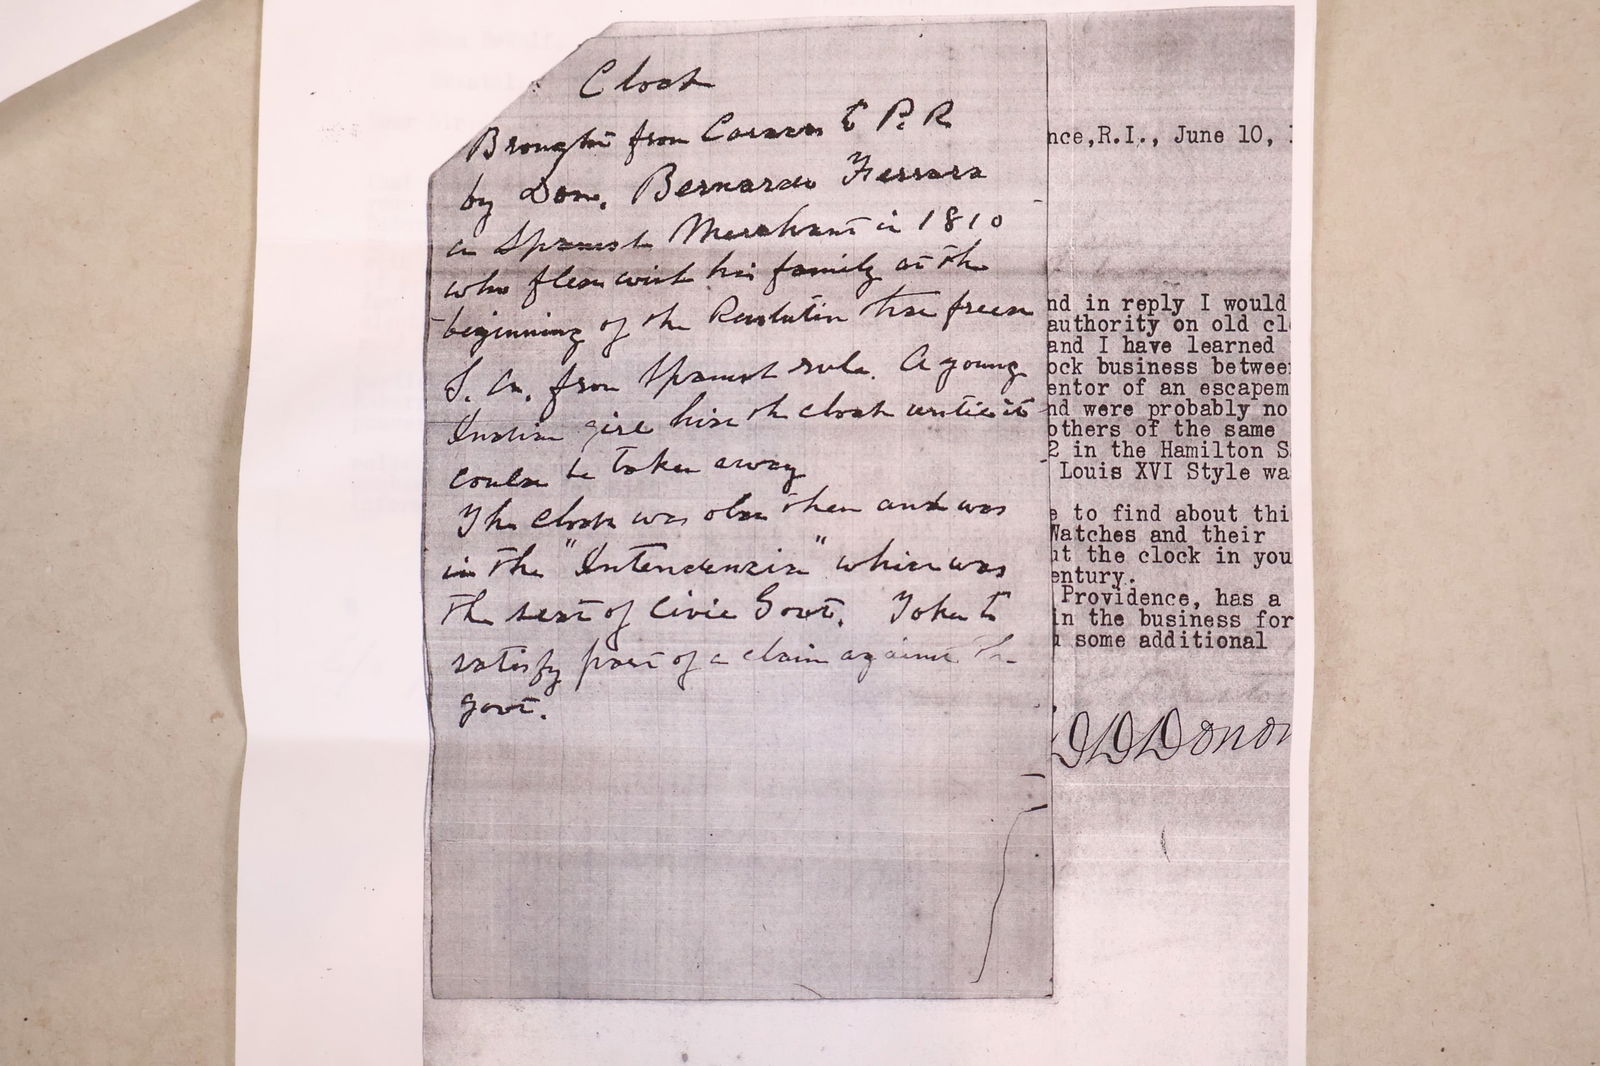 Clock
Brought from Caracas to P. R.
by Don. Bernardo Ferrara
a Spanish Merchant in 1810
who flew with his family at the
beginning of the Revolution that freed
S. Am. from Spanish rule. A young
Indian girl hid the clock until it
could be taken away
The clock was old then and was
in the "Intendenzia" which was
the seat of Civic Govt. Token to
satisfy part of a claim against the
govt.
nce,R.I., June 10,
nd in reply I would
authority on old cl
and I have learned
ock business betwee
entor of an escapem
nd were probably no
others of the same
2 in the Hamilton S
Louis XVI Style wa
e to find about thi
Watches and their
ut the clock in you
entury.
Providence, has a
in the business for
u some additional